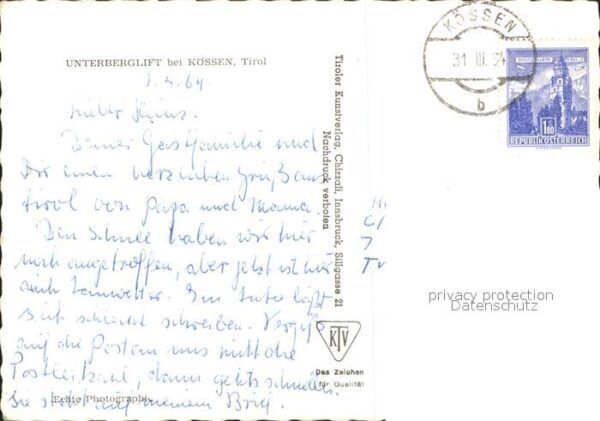 UNTERBERGLIFT bei KÖSSEN, Tirol
1.4.64
Lieber Heinz.
Deiner Gastfamilie und
Dir einen herzlichen Gruß aus
Tirol von Papa und Mama.
Den Schnee haben wir hier
noch angetroffen, aber jetzt ist hier
auch Tauwetter. Im Auto läßt
sich schlecht schreiben. Vergiß
auf die Post an uns nicht die
Postleitzahl, dann geht's schneller.
Sie steht auf meinem Brief.
Echte Photographie
Tiroler Kunstverlag, Chizzali, Innsbruck, Sillgasse 21
Nachdruck verboten
KTV
Das Zeichen
für Qualität
KÖSSEN
31 III.
b
1.80
REPUBLIK ÖSTERREICH
privacy protection
Datenschutz